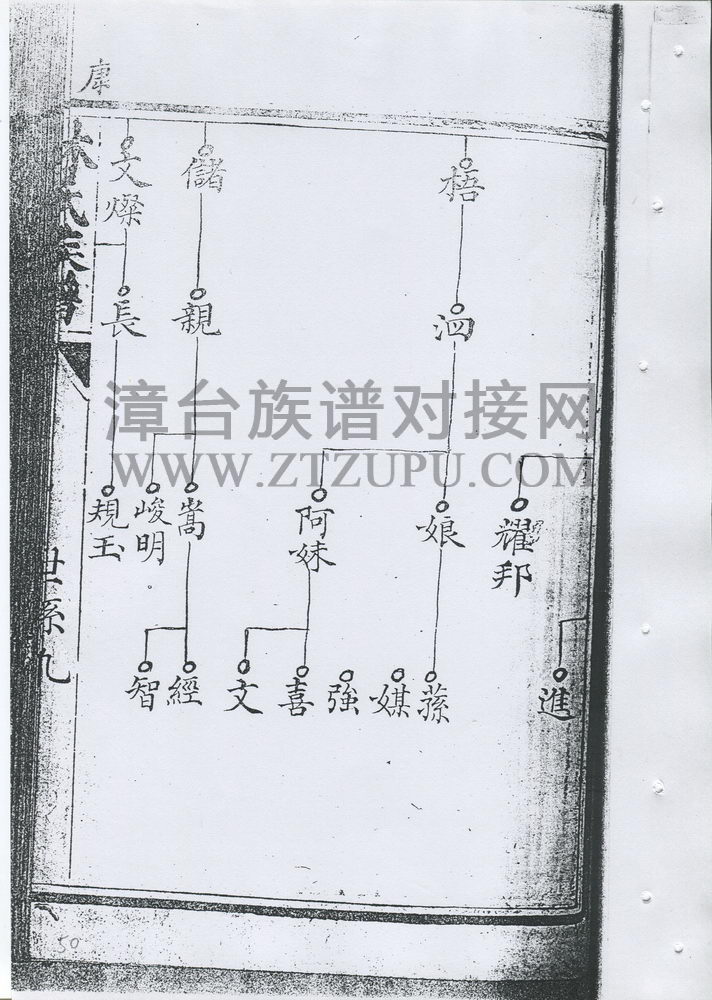 康
梧
儲
文燦
泗
親
長
耀邦
娘
阿妹
嵩
峻明
規玉
進
蓀
媒
強
喜
文
經
智
林氏族譜
世系九
漳台族谱对接网
WWW.ZTZUPU.COM
50